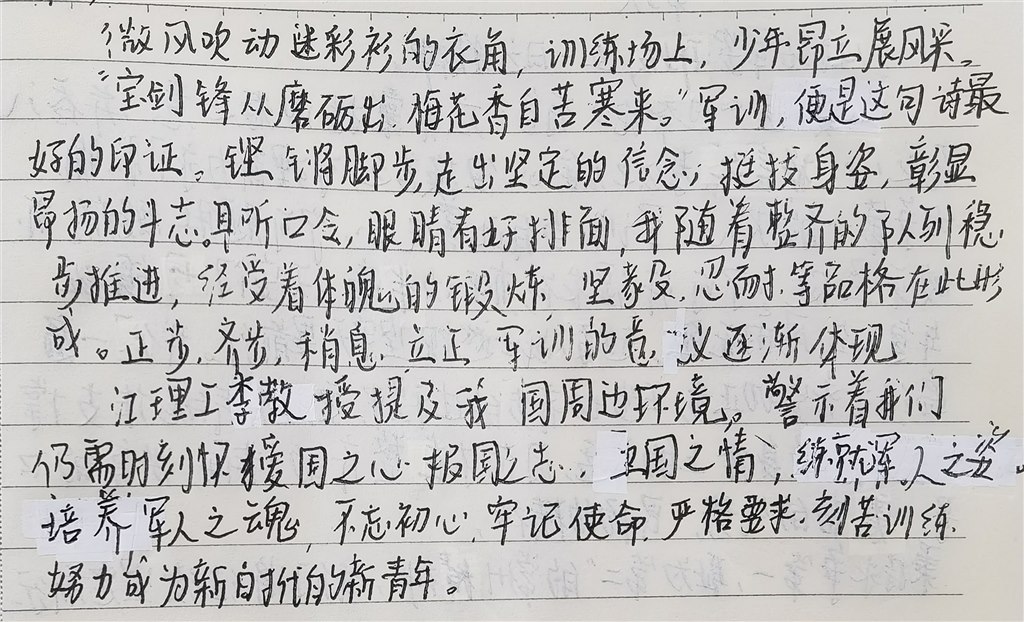 微风吹动迷彩衫的衣角，训练场上，少年昂立展风采。
“宝剑锋从磨砺出，梅花香自苦寒来。”军训，便是这句诗最
好的印证。铿锵脚步，走出坚定的信念；挺拔身姿，彰显
昂扬的斗志。耳听口令，眼睛看好排面，我随着整齐的队列稳
步推进，经受着体魄的锻炼 坚毅、忍耐等品格在此形
成。正步，齐步，稍息，立正 军训的意义逐渐体现
江理工李教授提及我国周边环境，警示着我们
仍需时刻怀揣爱国之心 报国之志，卫国之情，练就军人之姿，
培养军人之魂，不忘初心，牢记使命，严格要求，刻苦训练，
努力成为新时代的新青年。